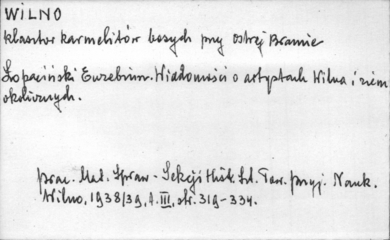 WILNO
klasztor karmelitów bosych przy Ostrej Bramie
Łopaciński Euzebiusz. Wiadomości o artystach Wilna i ziem
okolicznych.
Prac. Mat. Spraw. Sekcji Hist. Szt. Tow. Przyj. Nauk.
Wilno, 1938/39, t. III, str. 319-334.